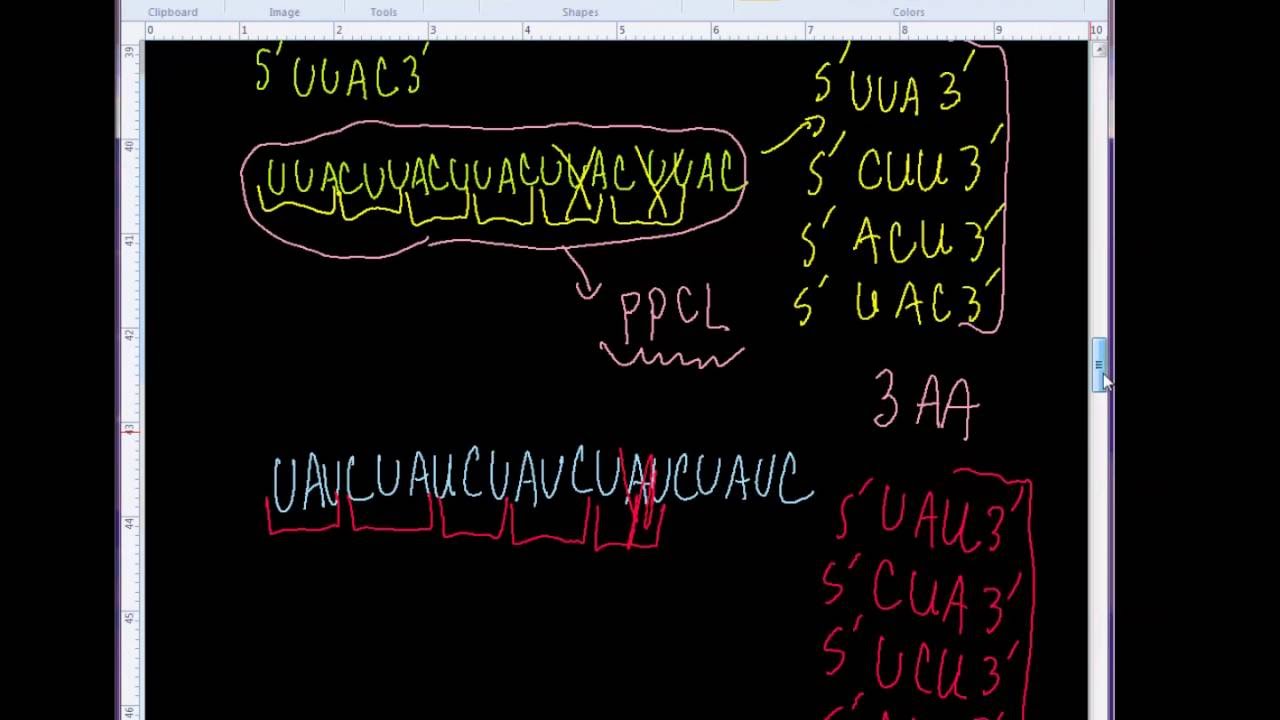 Clipboard Image Tools Shapes Colors
0 1 2 3 4 5 6 7 8 9 10
39
40
41
42
43
44
45
46
5' UUAC 3'
UUACUUACUUACUUACUUAC
PPCL
5' UUA 3'
5' CUU 3'
5' ACU 3'
5' UAC 3'
3 AA
UAUCUAUCUAUCUAUCUAUC
5' UAU 3'
5' CUA 3'
5' UCU 3'